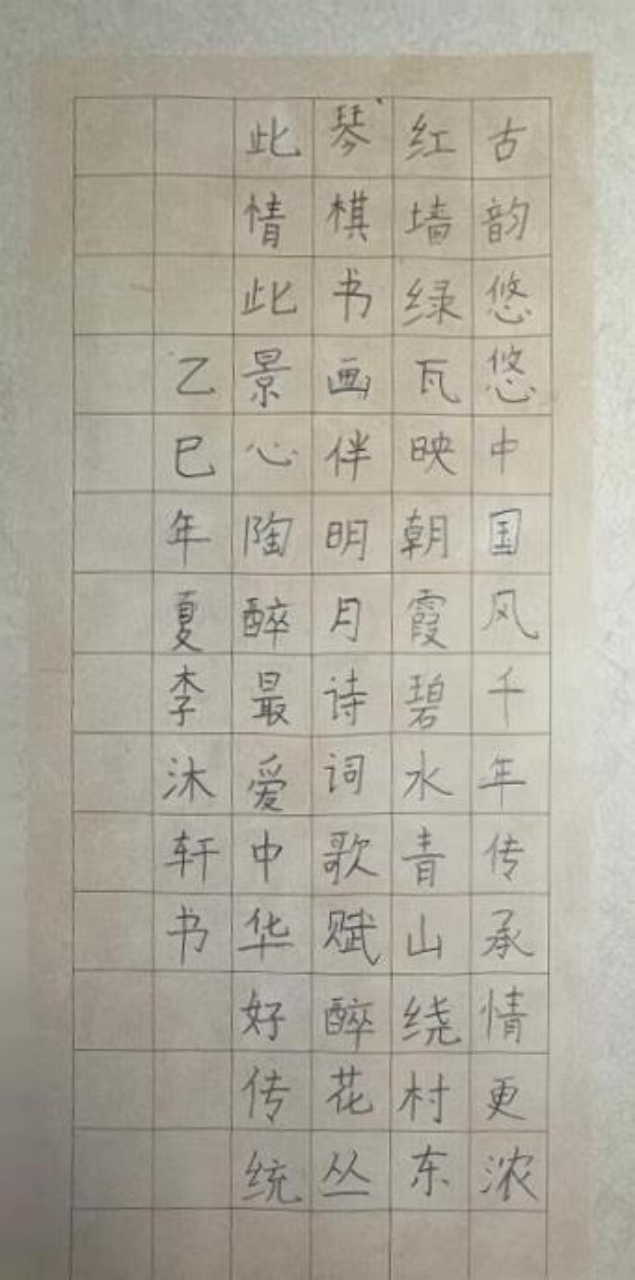 古韵悠悠中国风千年传承情更浓
红墙绿瓦映朝霞碧水青山绕村东
琴棋书画伴明月诗词歌赋醉花丛
此情此景心陶醉最爱中华好传统
乙巳年夏李沐轩书